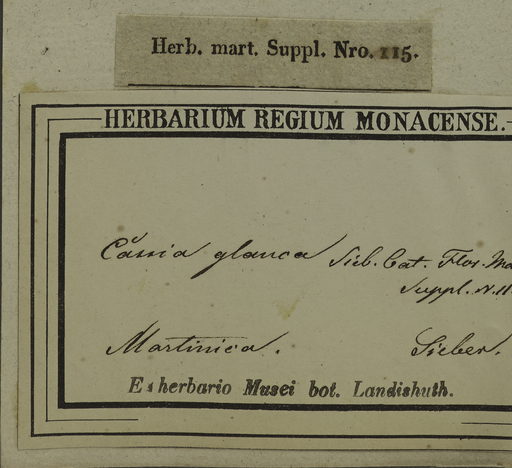 Herb. mart. Suppl. Nro. 115.
HERBARIUM REGIUM MONACENSE.
Cassia glauca Sieb. Cat. Flor. Ma
Suppl. N. 11
Martinica. Sieber.
Ex herbario Musei bot. Landishuth.